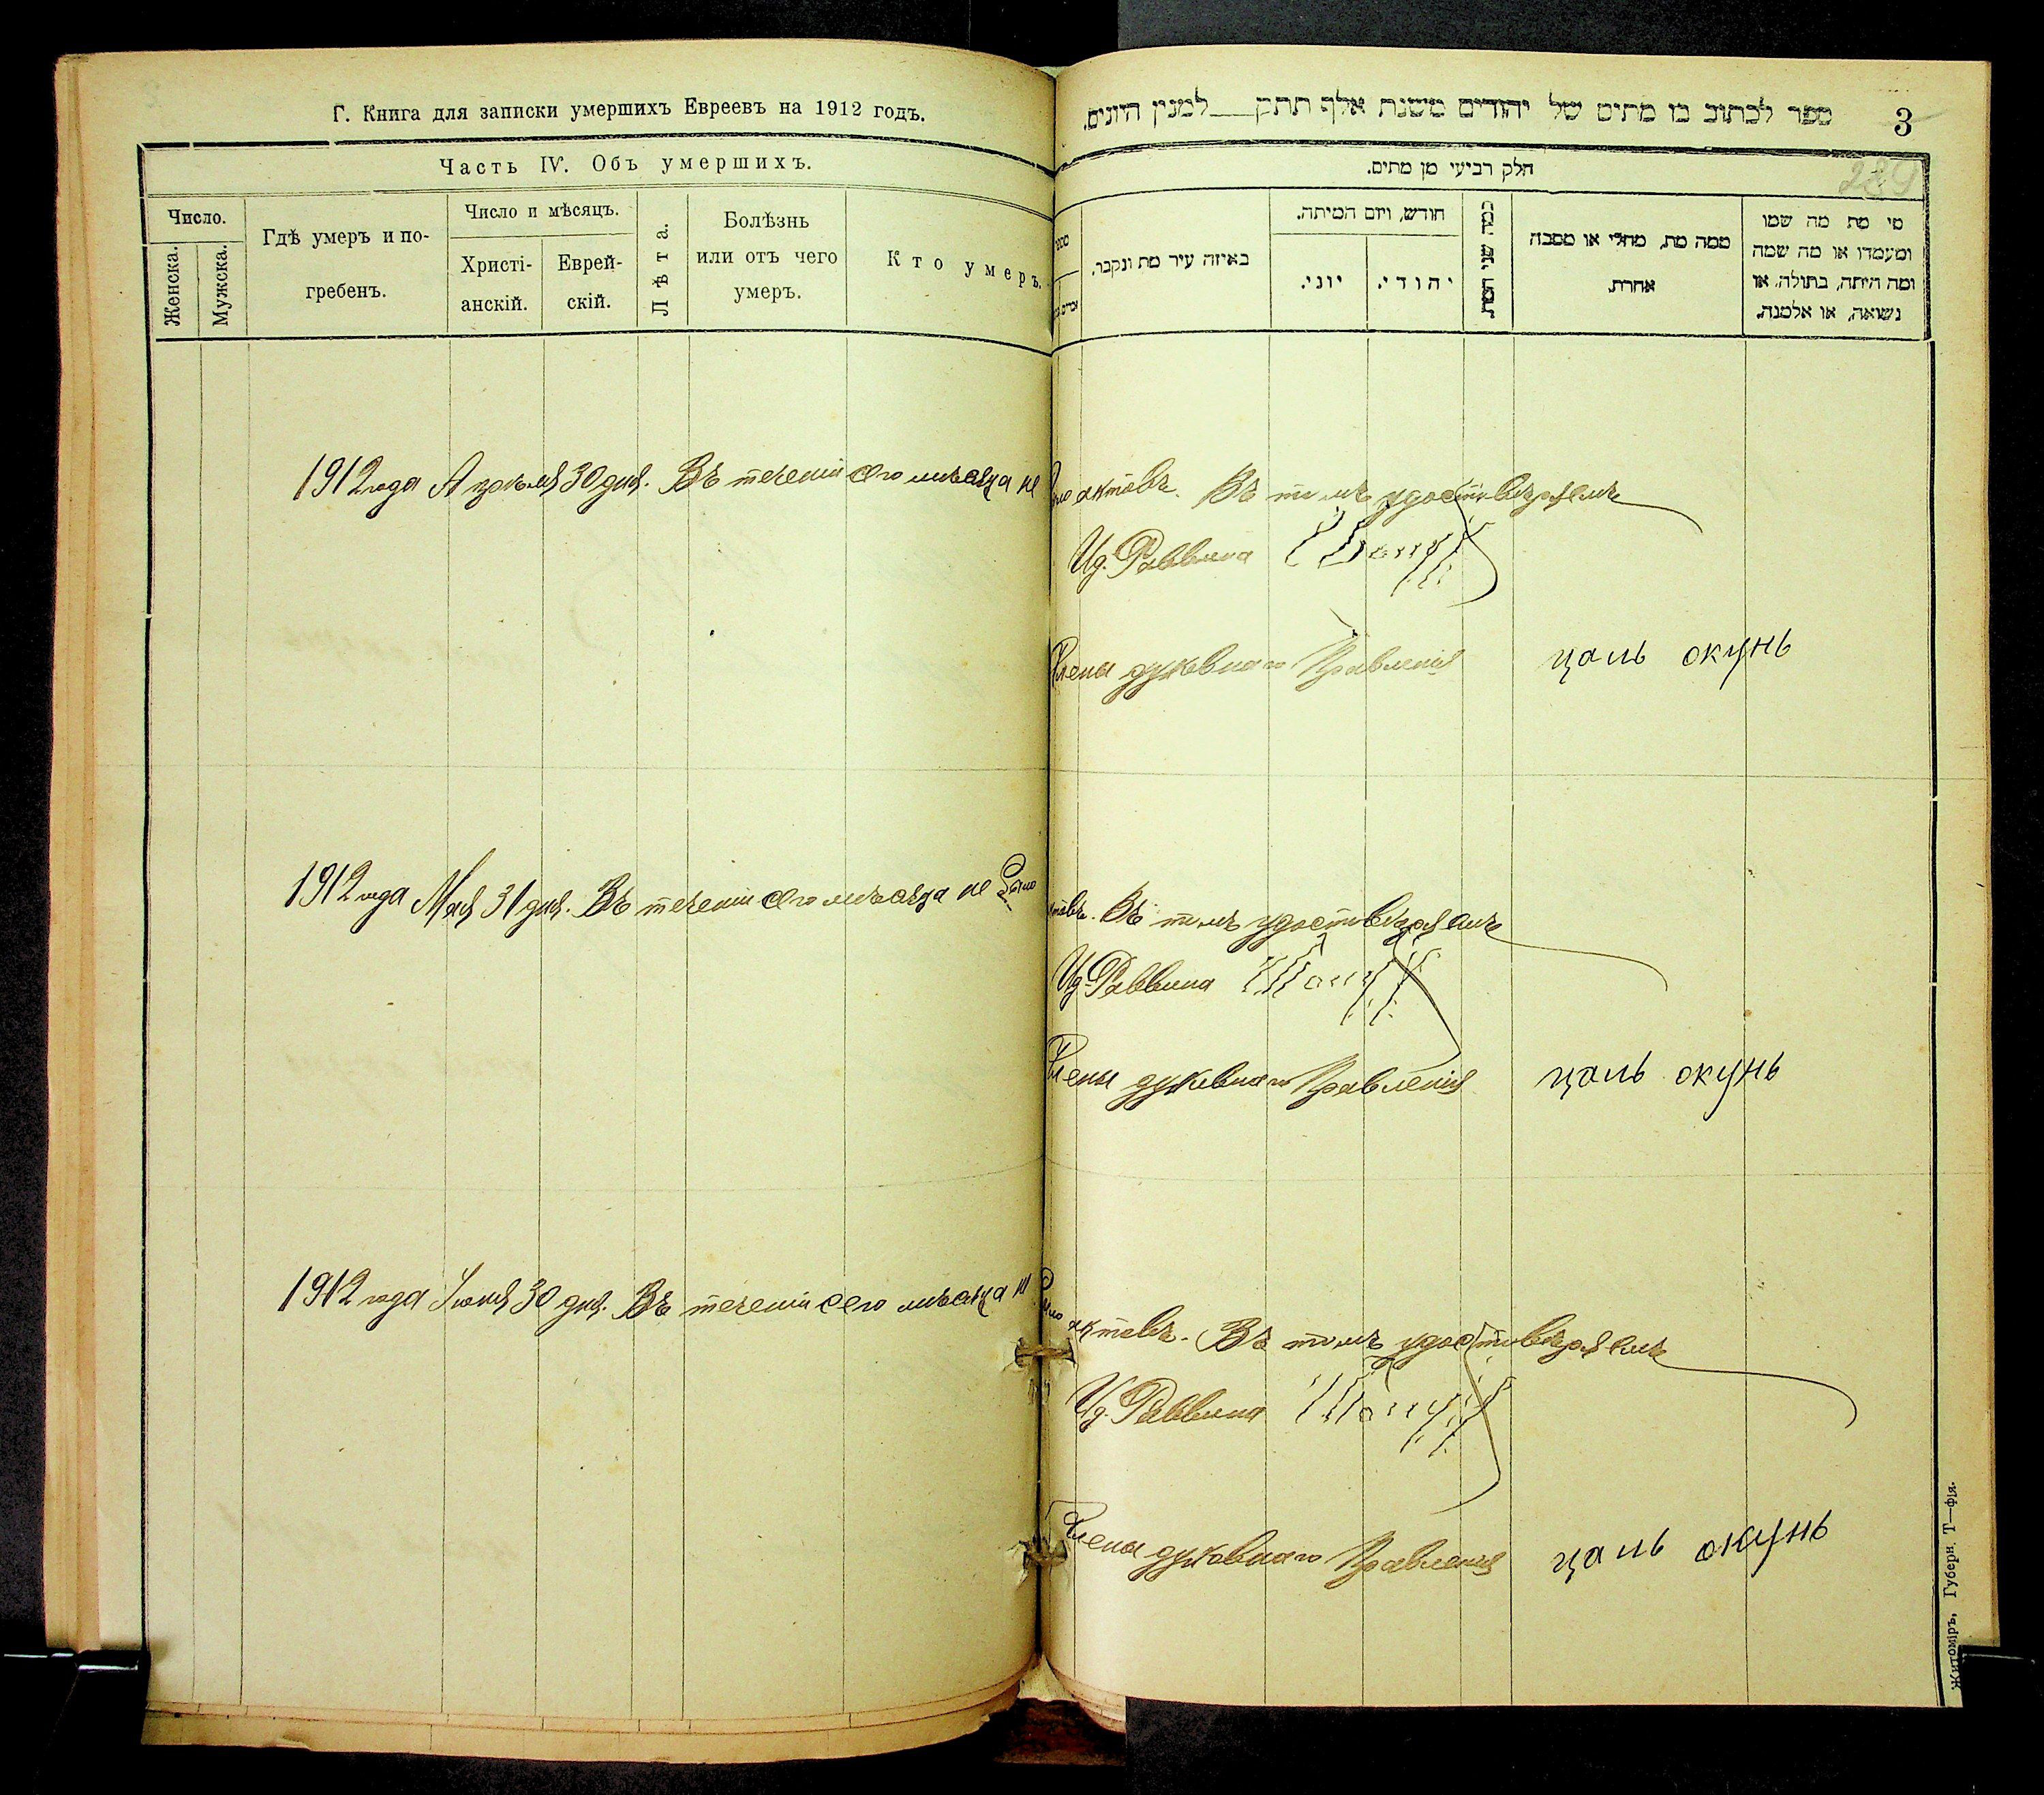 Г. Книга для записки умершихъ Евреевъ на 1912 годъ.
Часть IV. Объ умершихъ.
Число.
Женска.
Мужска.
Гдѣ умеръ и по-
гребенъ.
Число и мѣсяцъ.
Христі-
анскій.
Еврей-
скій.
Лѣта.
Болѣзнь
или отъ чего
умеръ.
Кто умеръ.
ספר לכתוב בו מתים של יהודים משנת אלף תתק למנין היונים.
3
289
חלק רביעי מן מתים.
באיזה עיר מת ונקבר.
חודש, ויום המיתה.
יוני.
יהודי.
כמה שני המת.
ממה מת, מחלי או מסבה
אחרת.
מי מת מה שמו
ומעמדו או מה שמה
ומה היתה, בתולה, או
נשואה, או אלמנה.
1912 года Апрѣля 30 дня. Въ теченіи сего мѣсяца не было актовъ. Въ томъ удостовѣряемъ
Ид. Раввина
Члены духовнаго Правленія цаль окунь
1912 года Мая 31 дня. Въ теченіи сего мѣсяца не было актовъ. Въ томъ удостовѣряемъ
Ид. Раввина
Члены духовнаго Правленія цаль окунь
1912 года Іюня 30 дня. Въ теченіи сего мѣсяца не было актовъ. Въ томъ удостовѣряемъ
Ид. Раввина
Члены духовнаго Правленія цаль окунь
Житоміръ, Губерн. Т—фія.